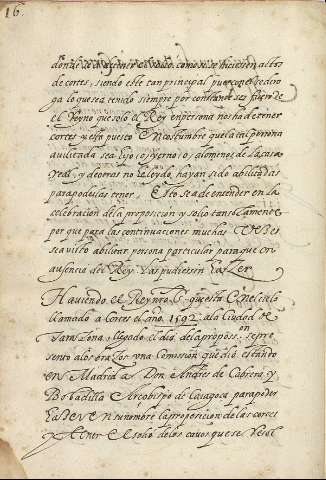 16
de cortes, siendo este tan principal pues con el se dio
ga lo que sea tenido siempre por constante ser fuero de
el Reyno que solo el Rey en persona nos ha de tener
cortes y esta puesto en costumbre que la tal persona
auilitada sea hijo, o yerno, o alomenos de la casa
real, y de otras no he leydo, hayan sido abilitadas
para poderlas tener. Esto sea de entender en la
celebracion de la proposicion y solio tansolamente
por que para las continuaciones muchas veces
se a visto abilitar persona particular para que en
ausencia del Rey las pudiessen hazer
Haviendo el Rey nro S. questa en el cielo
llamado a cortes el año 1592 a la ciudad de
Tarazona, llegado el dia de la proposon se pre
sento a los brazos una Comision que dio estando
en Madrid a Don Andres de Cabrera y
Bobadilla Arcobispo de Caragoça para poder
hazer en su nombre la proposicion de las cortes
y tener el solio de los cavos que se resol